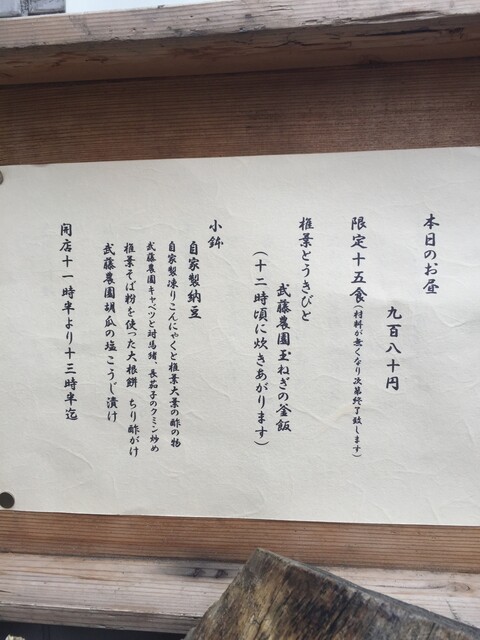 本日のお昼
九百八十円
限定十五食(材料が無くなり次第終了致します)
椎葉とうきびと
武藤農園玉ねぎの釜飯
(十二時頃に炊きあがります)
小鉢
自家製納豆
自家製凍りこんにゃくと椎葉大葉の酢の物
武藤農園キャベツと対馬猪、長茄子のクミン炒め
椎葉そば粉を使った大根餅 ちり酢がけ
武藤農園胡瓜の塩こうじ漬け
開店十一時半より十三時半迄